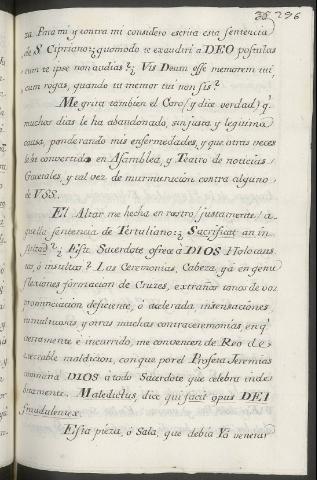 296
za. Para mi y contra mi considero escrita esta sentencia
de S. Cipriano: ¿quomodo te exaudiri a DEO postulas
cum te ipse non audias? ¿Vis Deum esse memorem tui,
cum rogas, quando tu memor tui non sis?
Me grita tambien el Coro (y dice verdad) q̃.
muchos dias le ha abandonado, sin justa y legitima
causa, ponderando mis enfermedades, y que otras veces
le he convertido en Asamblea, y Teatro de noticias
Gacetales, y tal vez de murmuracion contra alguno
de VSS.
El Altar me hecha en rostro (justamente) a-
quella sentencia de Tertuliano: ¿Sacrificat an in-
sultat? ¿Este Sacerdote ofrece à DIOS Holocaus-
tos, ó insultos? Las Ceremonias, Cabeza, ya en genu-
flexiones formacion de Cruzes, extraños tonos de voz
pronunciacion deficiente, ó acelerada, insensaciones,
tumultuarias, y otras muchas contraceremonias en q̃.
ciertamente è incurrido, me convencen de Reo de e-
xecrable maldicion, con que por el Profeta Jeremias
conmina DIOS à todo Sacerdote que celebra inde-
votamente. Maledictus, dice, qui facit opus DEI
fraudulenter.
Esta pieza, ó Sala, que debia Yò venerar